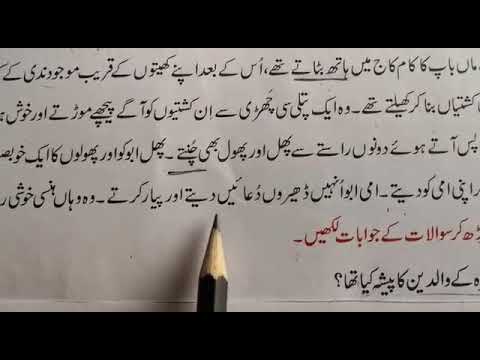 ماں باپ کا کام کاج میں ہاتھ بٹاتے تھے، اُس کے بعد اپنے کھیتوں کے قریب موجود ندی کے
کشتیاں بنا کر کھیلتے تھے۔ وہ ایک پتلی سی چھڑی سے اِن کشتیوں کو آگے پیچھے موڑتے اور خوش
پس آتے ہوئے دونوں راستے سے پھل اور پھول بھی چنتے۔ پھل ابو کو اور پھولوں کا ایک خوبصو
اپنی امی کو دیتے۔ امی ابو اُنہیں ڈھیروں دُعائیں دیتے اور پیار کرتے۔ وہ وہاں ہنسی خوشی ر
ڑھ کر سوالات کے جوابات لکھیں۔
ہ کے والدین کا پیشہ کیا تھا؟